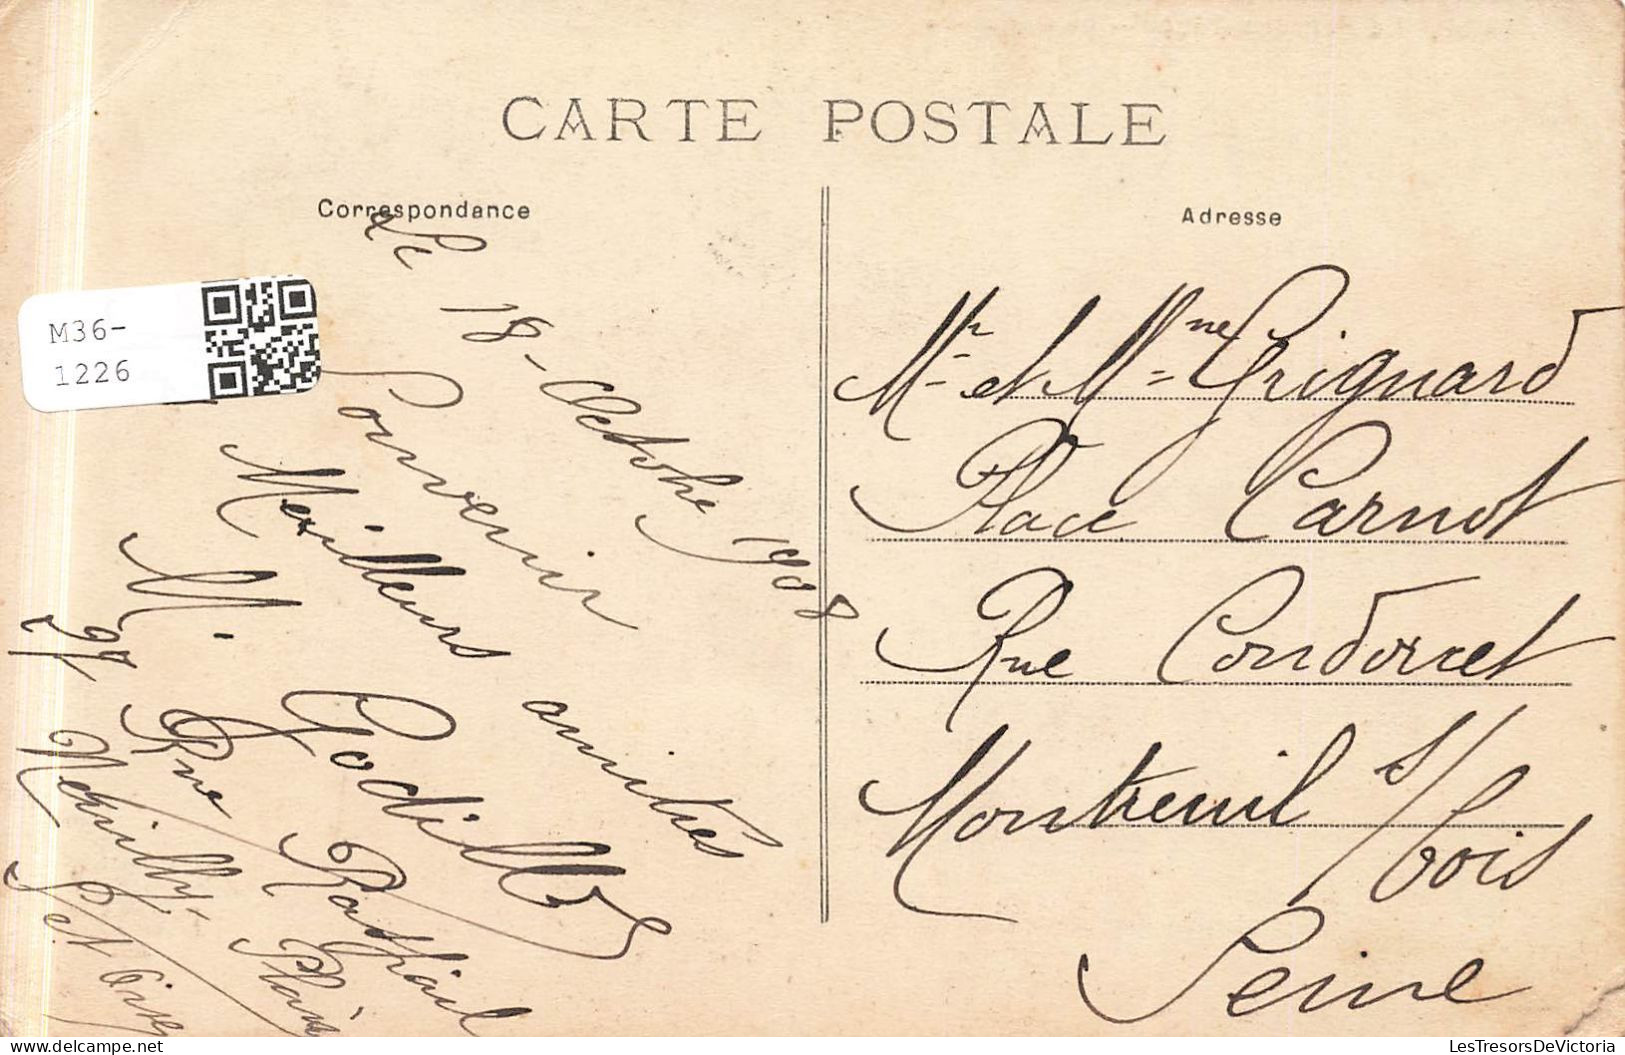 CARTE POSTALE
Correspondance
Adresse
M36-
1226
Le 18 - Octobre 1908
Souvenir
Meilleurs amitiés
M. Godill
97 Rue Raphaël
Neuilly-Plaisance
Set Oise
Mr et Mme Grignard
Place Carnot
Rue Condorcet
Montreuil s/bois
Seine
LesTresorsDeVictoria.com